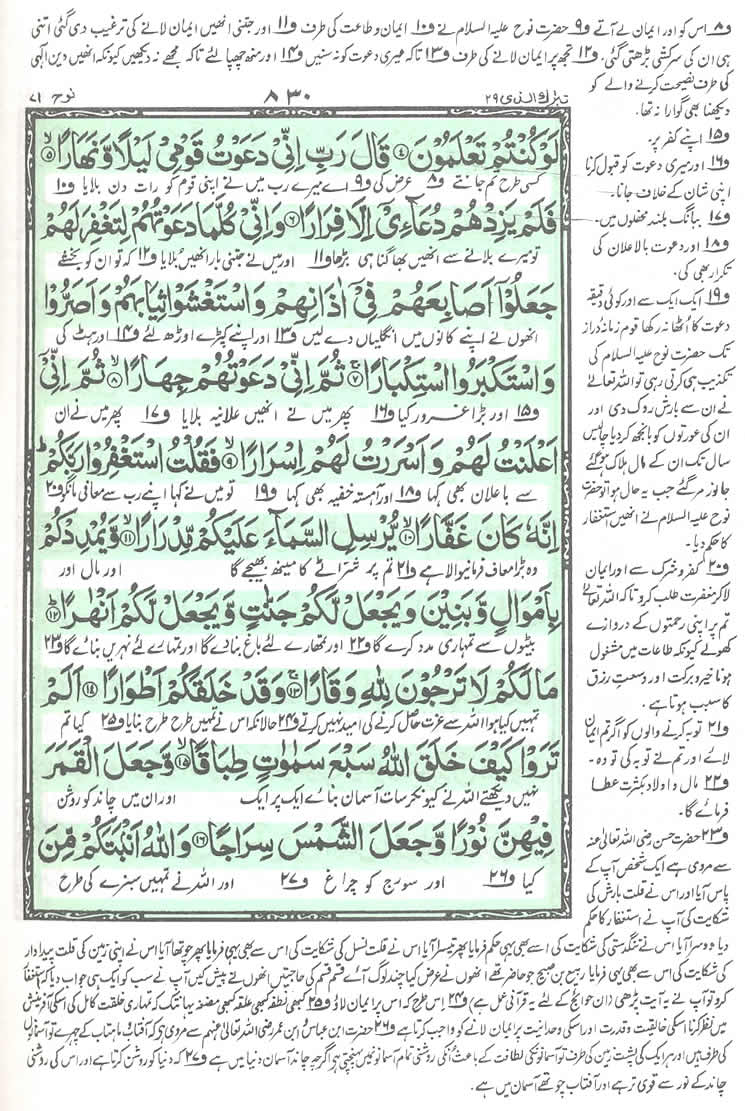 ف۸ اس کو اور ایمان لے آتے ف۹ حضرت نوح علیہ السلام نے ف۱۰ ایمان و طاعت کی طرف ف۱۱ اور جتنی انھیں ایمان لانے کی ترغیب دی گئی اتنی
ہی ان کی سرکشی بڑھتی گئی. ف۱۲ تجھ پر ایمان لانے کی طرف ف۱۳ تاکہ میری دعوت کو نہ سنیں ف۱۴ اور منھ چھپا لئے تاکہ مجھے نہ دیکھیں کیونکہ انھیں دین الٰہی
کی طرف نصیحت کرنے والے کو
دیکھنا بھی گوارا نہ تھا.
ف۱۵ اپنے کفر پر
ف۱۶ اور میری دعوت کو قبول کرنا
اپنی شان کے خلاف جانا.
ف۱۷ ببانگ بلند محفلوں میں.
ف۱۸ اور دعوت بالاعلان کی
تکرار بھی کی.
ف۱۹ ایک ایک سے اور کوئی دقیقہ
دعوت کا اٹھا نہ رکھا قوم زمانۂ دراز
تک حضرت نوح علیہ السلام کی
تکذیب ہی کرتی رہی تو اللہ تعالیٰ
نے ان سے بارش روک دی اور
ان کی عورتوں کو بانجھ کر دیا چالیس
سال تک ان کے مال ہلاک ہو گئے
جانور مر گئے جب یہ حال ہوا تو حضرت
نوح علیہ السلام نے انھیں استغفار
کا حکم دیا.
ف۲۰ کفر و شرک سے اور ایمان
لاکر مغفرت طلب کرو تاکہ اللہ تعالیٰ
تم پر اپنی رحمتوں کے دروازے
کھولے کیونکہ طاعات میں مشغول
ہونا خیر و برکت اور وسعتِ رزق
کا سبب ہوتا ہے.
ف۲۱ توبہ کرنے والوں کو اگر تم ایمان
لائے اور تم نے توبہ کی تو وہ
ف۲۲ مال و اولاد بکثرت عطا
فرمائے گا.
ف۲۳ حضرت حسن رضی اللہ تعالیٰ عنہ
سے مروی ہے ایک شخص آپ کے
پاس آیا اور اس نے قلت بارش کی
شکایت کی آپ نے استغفار کا حکم
تبٰرك الذى ٢٩ ٨٣٠ نوح ٧١
لَوْ كُنْتُمْ تَعْلَمُوْنَ ۝٤ قَالَ رَبِّ اِنِّىْ دَعَوْتُ قَوْمِىْ لَيْلًا وَّنَهَارًا ۝٥
کسی طرح تم جانتے ف۸ عرض کی ف۹ اے میرے رب میں نے اپنی قوم کو رات دن بلایا ف۱۰
فَلَمْ يَزِدْهُمْ دُعَآءِىْٓ اِلَّا فِرَارًا ۝٦ وَاِنِّىْ كُلَّمَا دَعَوْتُهُمْ لِتَغْفِرَ لَهُمْ
تو میرے بلانے سے انھیں بھاگنا ہی بڑھا ف۱۱ اور میں نے جتنی بار انھیں بلایا ف۱۲ کہ تو ان کو بخشے
جَعَلُوْٓا اَصَابِعَهُمْ فِىْٓ اٰذَانِهِمْ وَاسْتَغْشَوْا ثِيَابَهُمْ وَاَصَرُّوْا
انھوں نے اپنے کانوں میں انگلیاں دے لیں ف۱۳ اور اپنے کپڑے اوڑھ لئے ف۱۴ اور ہٹ کی
وَاسْتَكْبَرُوا اسْتِكْبَارًا ۝٧ ثُمَّ اِنِّىْ دَعَوْتُهُمْ جِهَارًا ۝٨ ثُمَّ اِنِّىْٓ
ف۱۵ اور بڑا غرور کیا ف۱۶ پھر میں نے انھیں علانیہ بلایا ف۱۷ پھر میں نے ان
اَعْلَنْتُ لَهُمْ وَاَسْرَرْتُ لَهُمْ اِسْرَارًا ۝٩ فَقُلْتُ اسْتَغْفِرُوْا رَبَّكُمْ
سے باعلان بھی کہا ف۱۸ اور آہستہ خفیہ بھی کہا ف۱۹ تو میں نے کہا اپنے رب سے معافی مانگو ف۲۰
اِنَّهٗ كَانَ غَفَّارًا ۝١٠ يُّرْسِلِ السَّمَآءَ عَلَيْكُمْ مِّدْرَارًا ۝١١ وَّيُمْدِدْكُمْ
وہ بڑا معاف فرمانیوالا ہے ف۲۱ تم پر شراٹے کا مینھ بھیجے گا اور مال اور
بِاَمْوَالٍ وَّبَنِيْنَ وَيَجْعَلْ لَّكُمْ جَنّٰتٍ وَّيَجْعَلْ لَّكُمْ اَنْهٰرًا ۝١٢
بیٹوں سے تمہاری مدد کرے گا ف۲۲ اور تمھارے لئے باغ بنا دے گا اور تمہارے لئے نہریں بنائے گا ف۲۳
مَا لَكُمْ لَا تَرْجُوْنَ لِلّٰهِ وَقَارًا ۝١٣ وَقَدْ خَلَقَكُمْ اَطْوَارًا ۝١٤ اَلَمْ
تمہیں کیا ہوا اللہ سے عزت حاصل کرنے کی امید نہیں کرتے ف۲۴ حالانکہ اس نے تمہیں طرح طرح بنایا ف۲۵ کیا تم
تَرَوْا كَيْفَ خَلَقَ اللّٰهُ سَبْعَ سَمٰوٰتٍ طِبَاقًا ۝١٥ وَّجَعَلَ الْقَمَرَ
نہیں دیکھتے اللہ نے کیونکر سات آسمان بنائے ایک پر ایک اور ان میں چاند کو روشن
فِيْهِنَّ نُوْرًا وَّجَعَلَ الشَّمْسَ سِرَاجًا ۝١٦ وَاللّٰهُ اَنْۢبَتَكُمْ مِّنَ
کیا ف۲۶ اور سورج کو چراغ ف۲۷ اور اللہ نے تمہیں سبزے کی طرح
دیا دوسرا آیا اس نے تنگدستی کی شکایت کی اسے بھی یہی حکم فرمایا پھر تیسرا آیا اس نے قلت نسل کی شکایت کی اس سے بھی یہی فرمایا پھر چوتھا آیا اس نے اپنی زمین کی قلت پیداوار
کی شکایت کی اس سے بھی یہی فرمایا ربیع بن صبیح جو حاضر تھے انھوں نے عرض کیا چند لوگ آئے قسم قسم کی حاجتیں انھوں نے پیش کیں آپ نے سب کو ایک ہی جواب دیا کہ استغفار
کرو تو آپ نے یہ آیت پڑھی (ان حوائج کے لئے یہ قرآنی عمل ہے) ف۲۴ اس طرح کہ اس پر ایمان لاؤ ف۲۵ کبھی نطفہ کبھی علقہ کبھی مضغہ یہانتک کہ تمہاری خلقت کامل کی اسکی آفرینش
میں نظر کرنا اسکی خالقیت و قدرت اور اسکی وحدانیت پر ایمان لانے کو واجب کرتا ہے ف۲۶ حضرت ابن عباس و ابن عمر رضی اللہ تعالیٰ عنہم سے مروی ہے کہ آفتاب و ماہتاب کے چہرے تو آسمانوں
کی طرف ہیں اور ہر ایک کی پشت زمین کی طرف تو آسمانوں کی لطافت کے باعث اُنکی روشنی تمام آسمانوں میں پہنچتی ہے اگرچہ چاند آسمان دنیا میں ہے ف۲۷ کہ دنیا کو روشن کرتا ہے اور اس کی روشنی
چاند کے نور سے قوی تر ہے اور آفتاب چوتھے آسمان میں ہے.